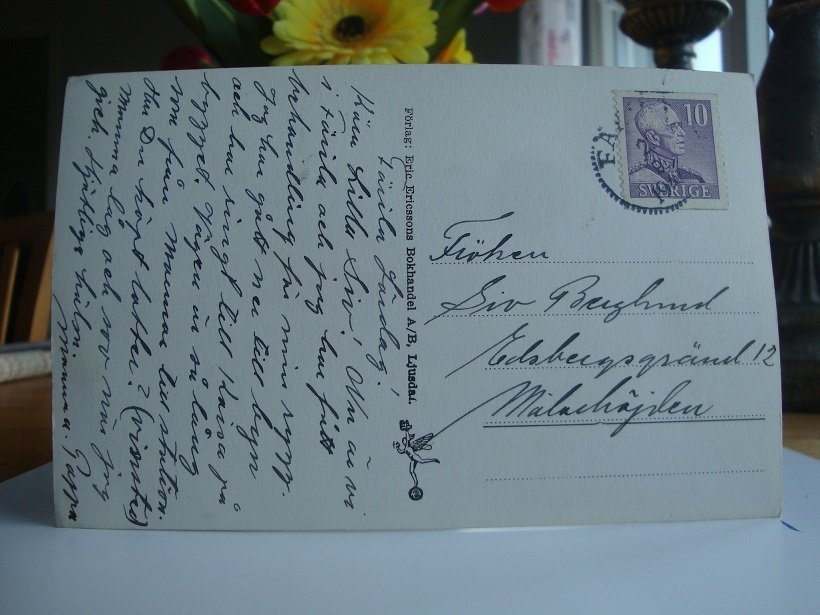 Färila Lördag!
Kära Lilla Siv! Nu är vi
i Färila och jag har fått
behandling för min rygg.
Jag har gått ner till byn
och har ringt till Kaisa på
bygget. Vägen är så lång
som från Mamma till station.
Har Du köpt lotter? (vissted)
Mamma låg och sov när jag
gick. Hjärtliga hälsn.
Mamma o. Pappa
Förlag: Eric Ericssons Bokhandel A/B, Ljusdal.
10
SVERIGE
FÄ
Fröken
Siv Berglund
Edsbergsgränd 12
Mälarhöjden